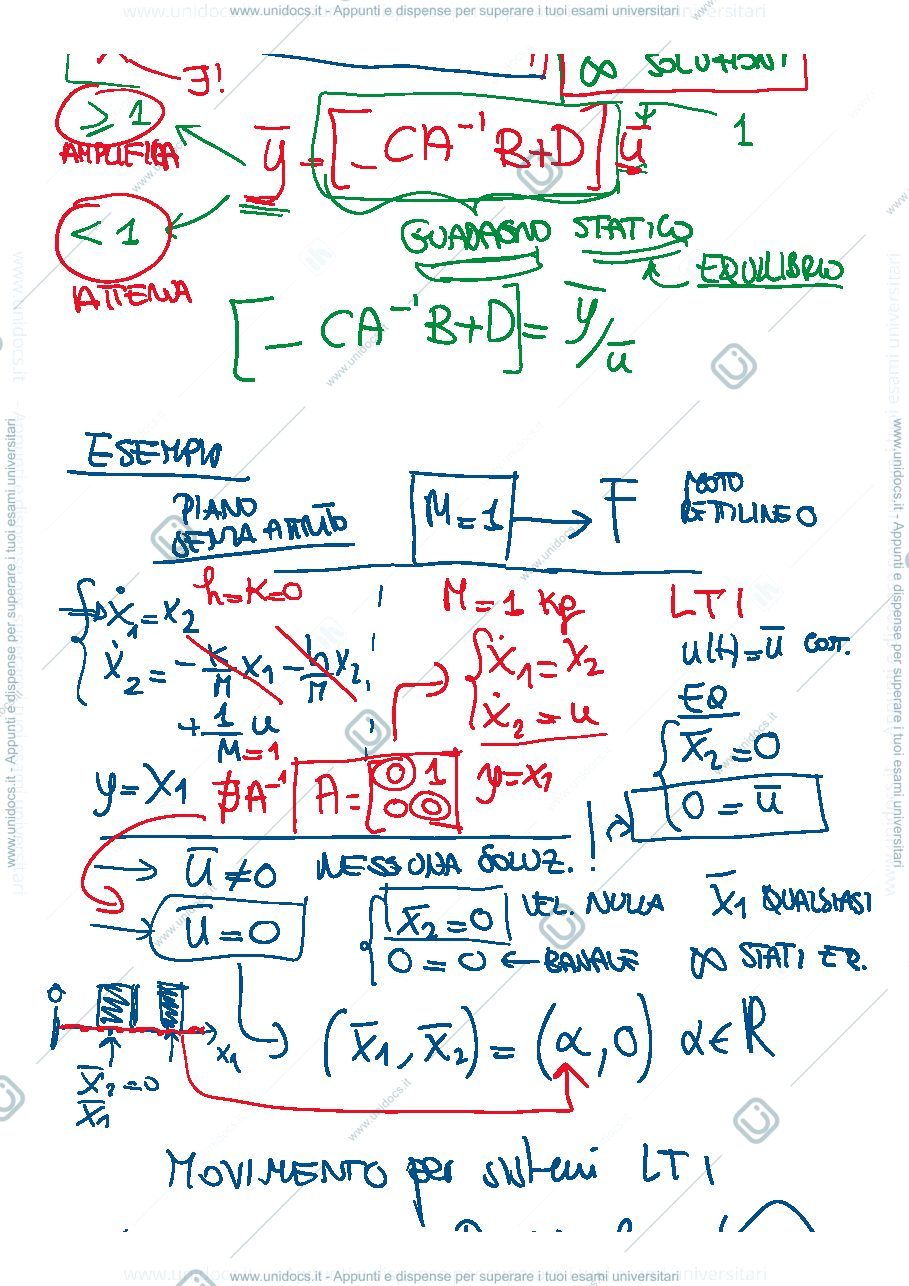 www.unidocs.it - Appunti e dispense per superare i tuoi esami universitari
∃!
∞ SOLUZIONI
≥ 1
AMPLIFICA
ȳ = [-CA⁻¹B+D] ū
1
< 1
ATTENUA
GUADAGNO STATICO
EQUILIBRIO
[-CA⁻¹B+D] = ȳ/ū
ESEMPIO
PIANO
SENZA ATTRITO
M=1 → F
MOTO
RETTILINEO
h=K=0
M=1 Kg
LTI
ẋ₁=x₂
ẋ₂=-K/M x₁ - h/M x₂
+ 1/M u
M=1
ẋ₁=x₂
ẋ₂=u
u(t)=ū cost.
EQ
x̄₂=0
0=ū
y=x₁
∄A⁻¹
A= 0 1
0 0
y=x₁
ū≠0 NESSUNA SOLUZ. !
ū=0
x̄₂=0 VEL. NULLA x̄₁ QUALSIASI
0=0 ← BANALE ∞ STATI EQ.
x₁
x̄₂=0
x̄₁
(x̄₁, x̄₂) = (α, 0) α∈ℝ
MOVIMENTO per sistemi LTI
www.unidocs.it - Appunti e dispense per superare i tuoi esami universitari